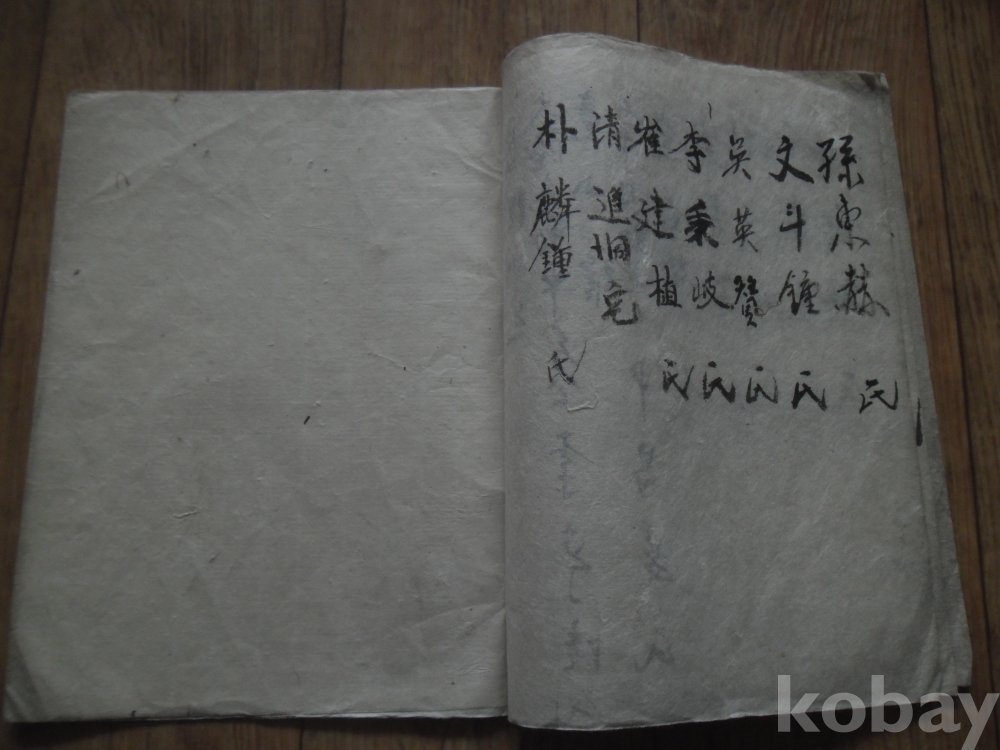 孫東赫 氏
文斗鍾 氏
吳英贊 氏
李秉岐 氏
崔建植 氏
清進洞宅
朴麟鍾 氏
kobay